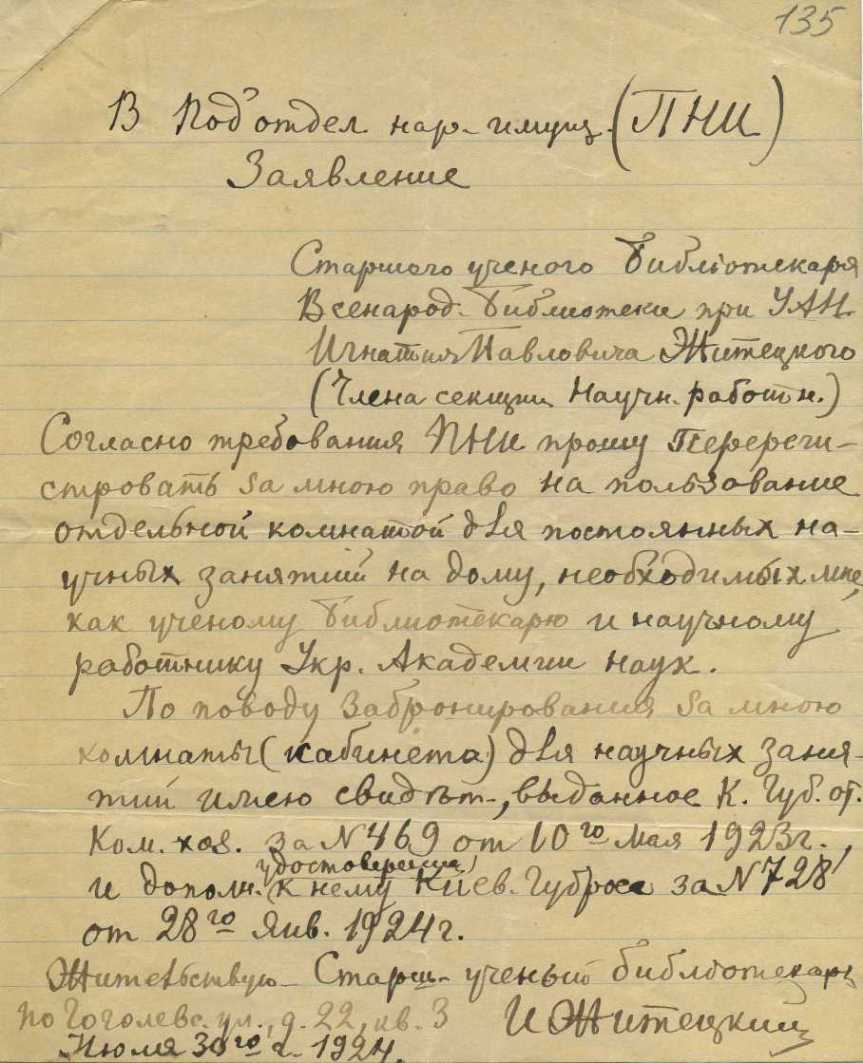 135
В Под'отдел нар. имущ. (ПНИ)
Заявление
Старшого ученого библіотекаря
Всенарод. Библиотеки при УАН.
Игнатия Павловича Житецкого
(Члена секции Научн. работн.)
Согласно требования ПНИ прошу Перереги-
стровать за мною право на пользование
отдельной комнатой для постоянных на-
учных занятий на дому, необходимых мне,
как ученому библиотекарю и научному
работнику Укр. Академии наук.
По поводу забронирования за мною
комнаты (кабинета) для научных заня-
тий имею свидѣт., выданное К. Губ. от.
Ком. хоз. за N 469 от 10го мая 1923г.,
удостоверение
и дополн. (к нему Киев. Губроса за N 728
от 28го Янв. 1924г.
Жительствую Старш. ученый библіотекарь
по Гоголевс. ул., д. 22, кв. 3 И Житецкий
Июля 30го 1924.